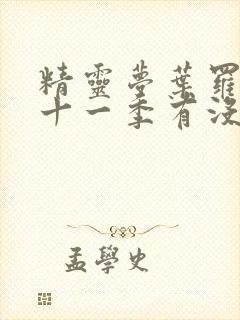 精靈夢葉羅
十一季有沒
孟學史